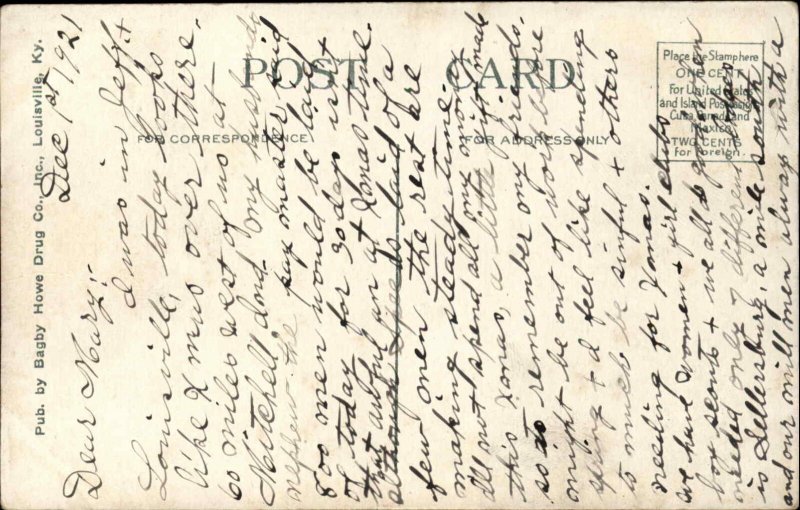 Pub. by Bagby Howe Drug Co., Inc., Louisville, Ky.
POST CARD
FOR CORRESPONDENCE
FOR ADDRESS ONLY
Place the Stamp here
ONE CENT
For United States
and Island Possessions
Cuba, Canada and
Mexico
TWO CENTS
For Foreign.
Dec 1st 1921
Dear Mary:
I was in Jeff. &
Louisville, today looks
like Xmas over there.
60 miles west of us at
Mitchell Ind my husbands
nephew the pay master said
800 men would be laid
of today for 30 days isnt
that awful an at Xmas time.
although is laid of a
few men the rest are
making steady time.
Ill not spend all my money
this Xmas, a little if made
so to remember my friends.
might be out of work before
spring & I feel like spending
to much be sinful & others
needing for Xmas.
we have women & girl clubs
boy scouts & we all
needed only 7 different
is Sellersburg, a mile south
and our mill men always with a